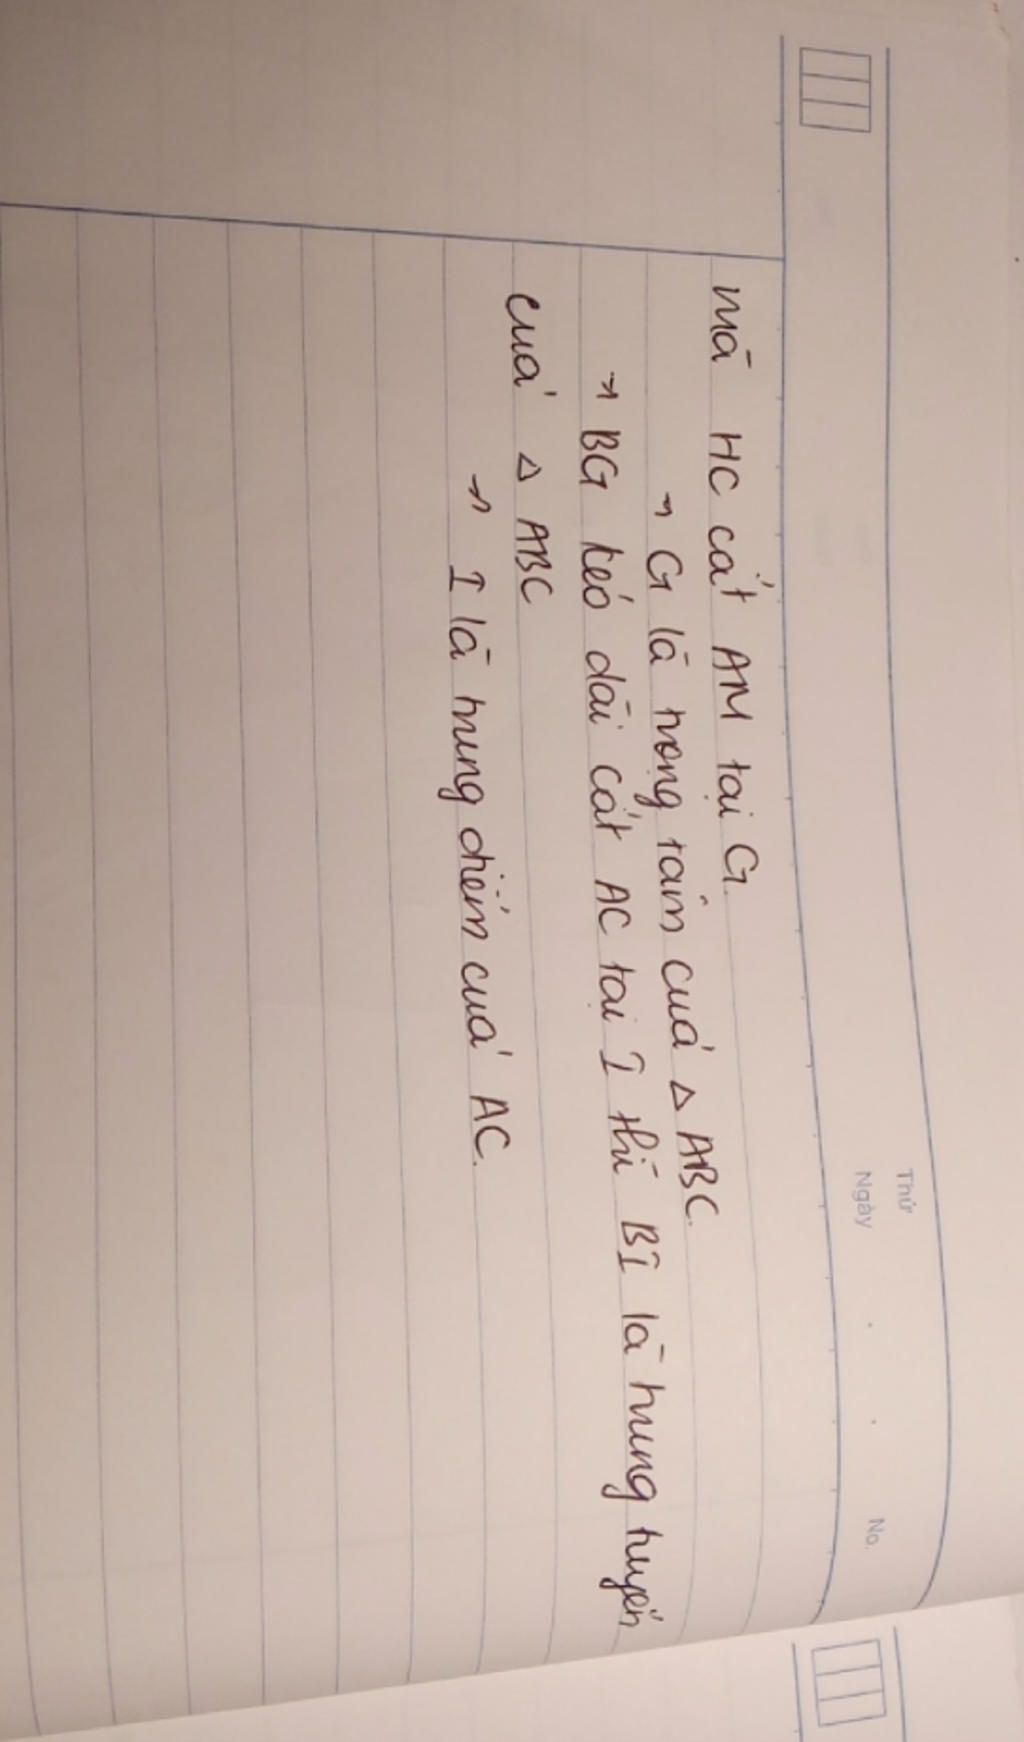 Thứ
Ngày . . No.
mà HC cắt AM tại G.
→ G là trọng tâm của Δ ABC.
→ BG kéo dài cắt AC tại I thì BI là trung tuyến
của Δ ABC
→ I là trung điểm của AC.